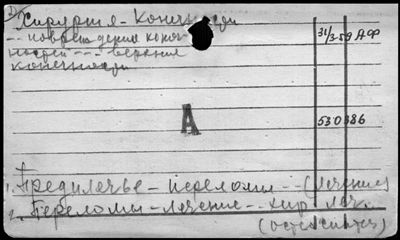 Хирургия - Конечности
-- повреждения конеч-
ностей --- верхние
конечности
31/3-59 А.Ф
А
530386
1. Предплечье - переломы -- (лечение)
2. Переломы - лечение -- хир. леч.
(остеосинтез)